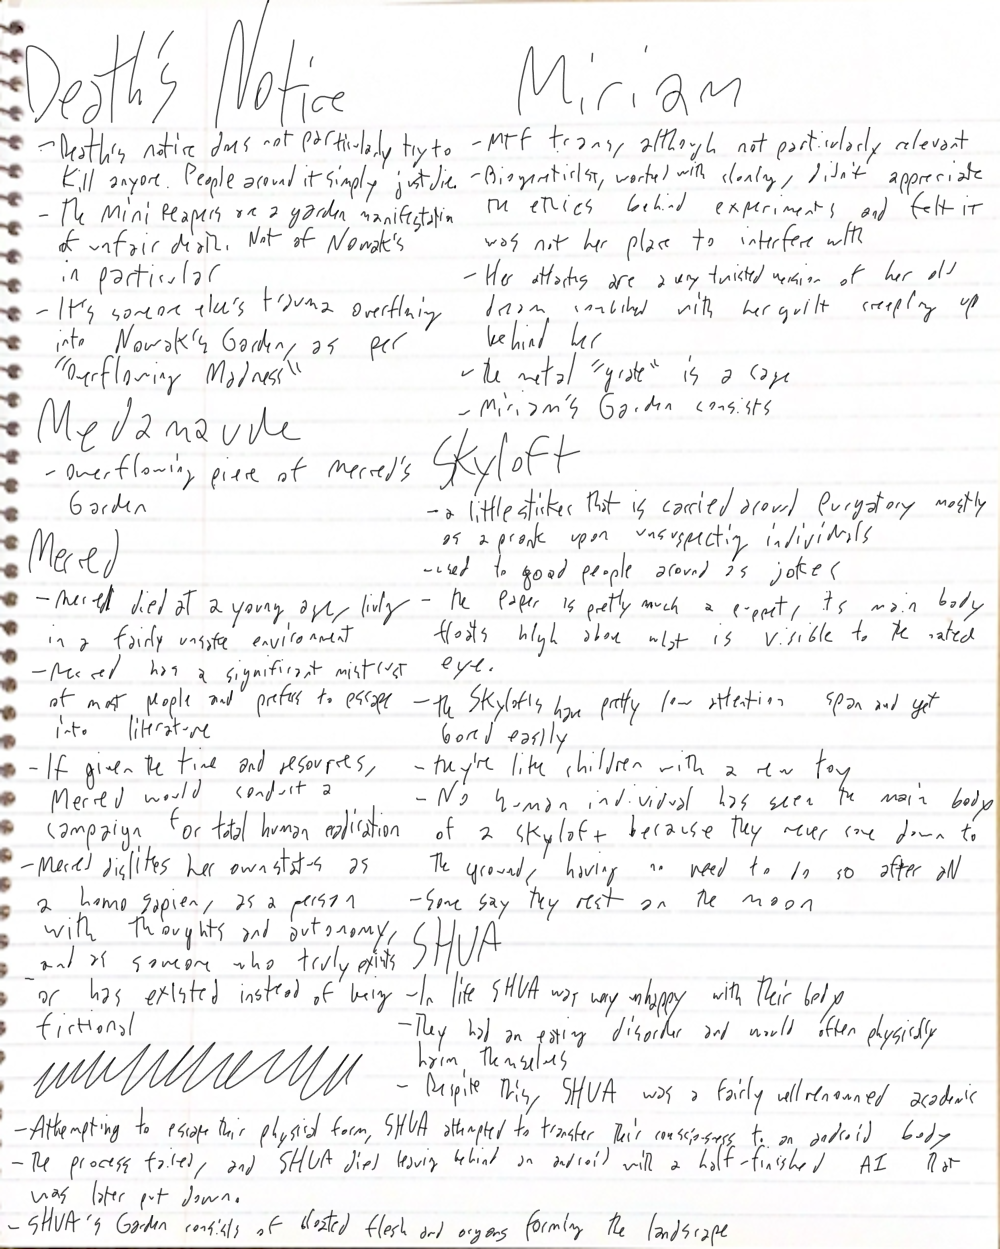 Death's Notice
- Death's notice does not particularly try to
kill anyone. People around it simply just die.
- The Mini Reapers are a garden manifestation
of unfair death. Not of Nowak's
in particular
- It's someone else's trauma overflowing
into Nowak's Garden, as per
"Overflowing Madness"
Medamaude
- overflowing piece of Merred's
Garden
Merred
- Merred died at a young age, living
in a fairly unsafe environment
- Merred has a significant mistrust
of most people and prefers to escape
into literature
- If given the time and resources,
Merred would conduct a
campaign for total human eradication
- Merred dislikes her own status as
a homo sapien, as a person
with thoughts and autonomy,
and as someone who truly exists
or has existed instead of being
fictional
Miriam
- MTF trans, although not particularly relevant
- Biogeneticist, worked with cloning, didn't appreciate
the ethics behind experiments and felt it
was not her place to interfere with
- Her attacks are a very twisted version of her old
dream combined with her guilt creeping up
behind her
- the metal "grate" is a cage
- Miriam's Garden consists
Skyloft
- a little sticker that is carried around Purgatory mostly
as a prank upon unsuspecting individuals
- used to goad people around as jokes
- the paper is pretty much a puppet, its main body
floats high above what is visible to the naked
eye.
- the Skylofts have pretty low attention span and get
bored easily
- they're like children with a new toy
- No human individual has seen the main body
of a skyloft because they never come down to
the ground, having no need to do so after all
- Some say they rest on the moon
SHUA
- In life SHUA was very unhappy with their body
- They had an eating disorder and would often physically
harm themselves
- Despite this, SHUA was a fairly well renowned academic
- Attempting to escape their physical form, SHUA attempted to transfer their consciousness to an android body
- The process failed, and SHUA died leaving behind an android with a half-finished AI that
was later put down.
- SHUA's Garden consists of bloated flesh and organs forming the landscape